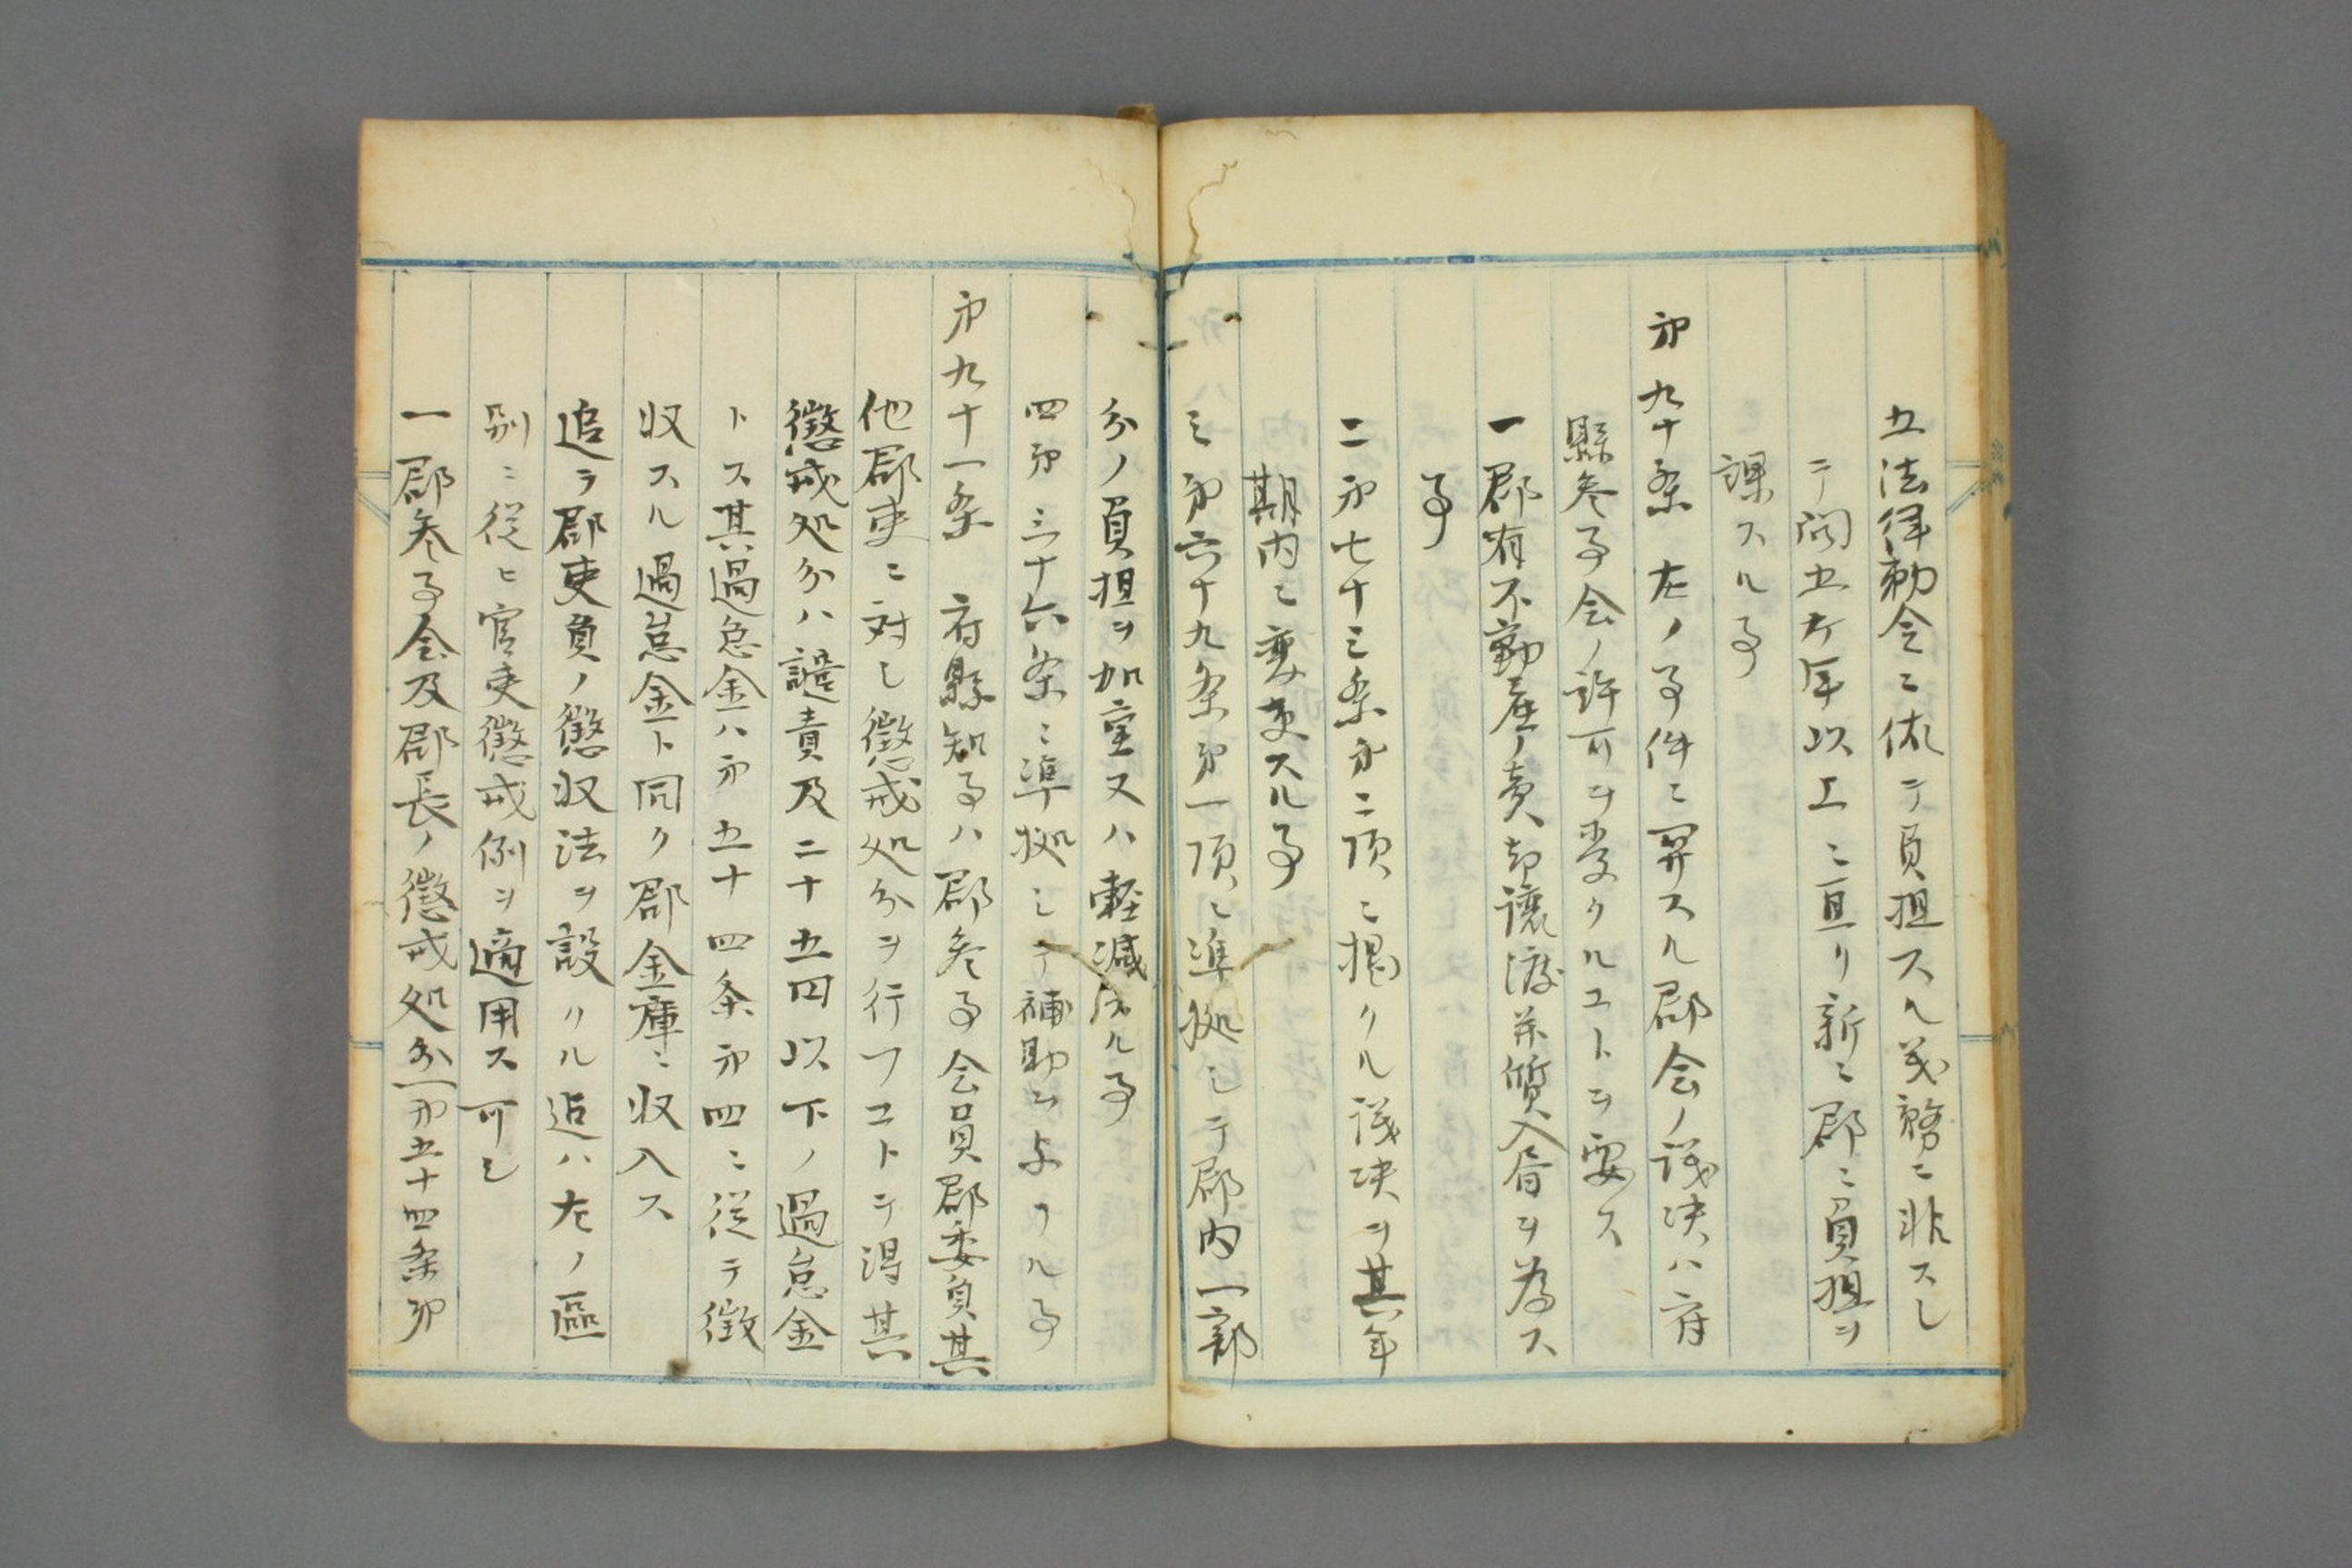 五法律勅令ニ依テ負担スヘ義務ニ非スシ
テ向五ケ年以上ニ亘リ新ニ郡ニ負担ヲ
課スル事
第九十条 左ノ事件ニ関スル郡会ノ議决ハ府
縣参事会ノ許可ヲ受クルコトヲ要ス
一郡有不動産ノ賣却譲渡並質入書ヲ為ス
事
二第七十三条第二項ニ掲クル議决ヲ其年
期内ニ変更スル事
三第六十九条第一項ニ準拠シテ郡内一部
分ノ負担ヲ加重又ハ軽減スル事
四第三十六条ニ準拠シテ補助ヲ与フル事
第九十一条 府縣知事ハ郡参事会員郡委員其
他郡吏ニ対シ懲戒処分ヲ行フコトヲ得其
懲戒処分ハ譴責及二十五円以下ノ過怠金
トス其過怠金ハ第五十四条第四ニ従テ徴
収スル過怠金ト同ク郡金庫ニ収入ス
追テ郡吏員ノ懲収法ヲ設クル迄ハ左ノ區
別ニ従ヒ官吏懲戒例ヲ適用ス可シ
一郡参事会及郡長ノ懲戒処分(第五十四条第